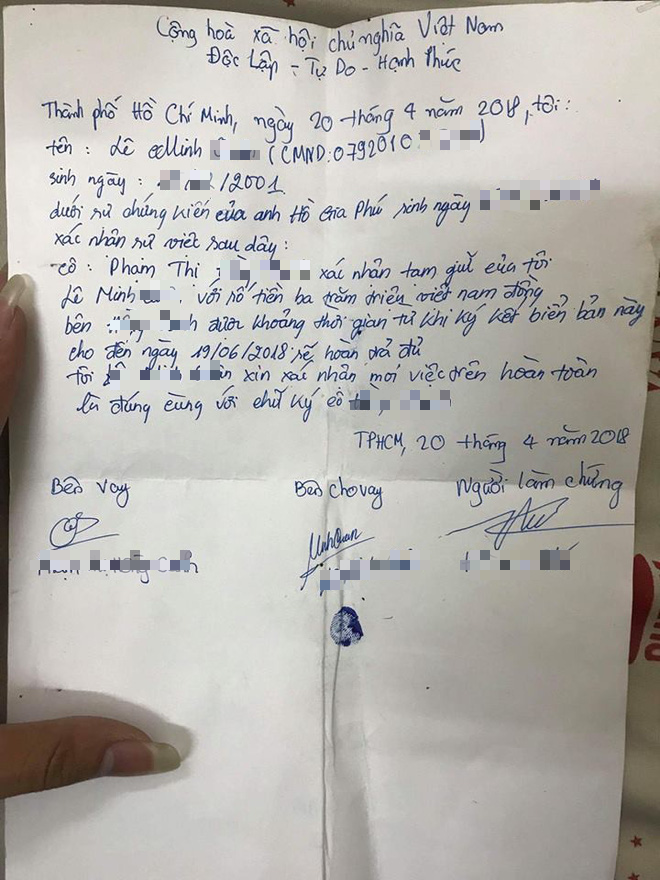 Cộng hoà xã hội chủ nghĩa Việt Nam
Độc Lập - Tự Do - Hạnh Phúc
Thành phố Hồ Chí Minh, ngày 20 tháng 4 năm 2018, tôi:
tên : Lê Minh (CMND: 0792010
sinh ngày : /2001
dưới sự chứng kiến của anh Hồ Gia Phú sinh ngày
xác nhận sự việc sau đây:
cô : Phạm Thị xác nhận tạm giữ của tôi
Lê Minh với số tiền ba trăm triệu việt nam đồng
bên được khoảng thời gian từ khi ký kết biển bản này
cho đến ngày 19/06/2018 sẽ hoàn trả đủ
tôi xin xác nhận mọi việc trên hoàn toàn
là đúng cùng với chữ ký cô
TPHCM, 20 tháng 4 năm 2018
Bên Vay Bên Cho vay Người làm chứng